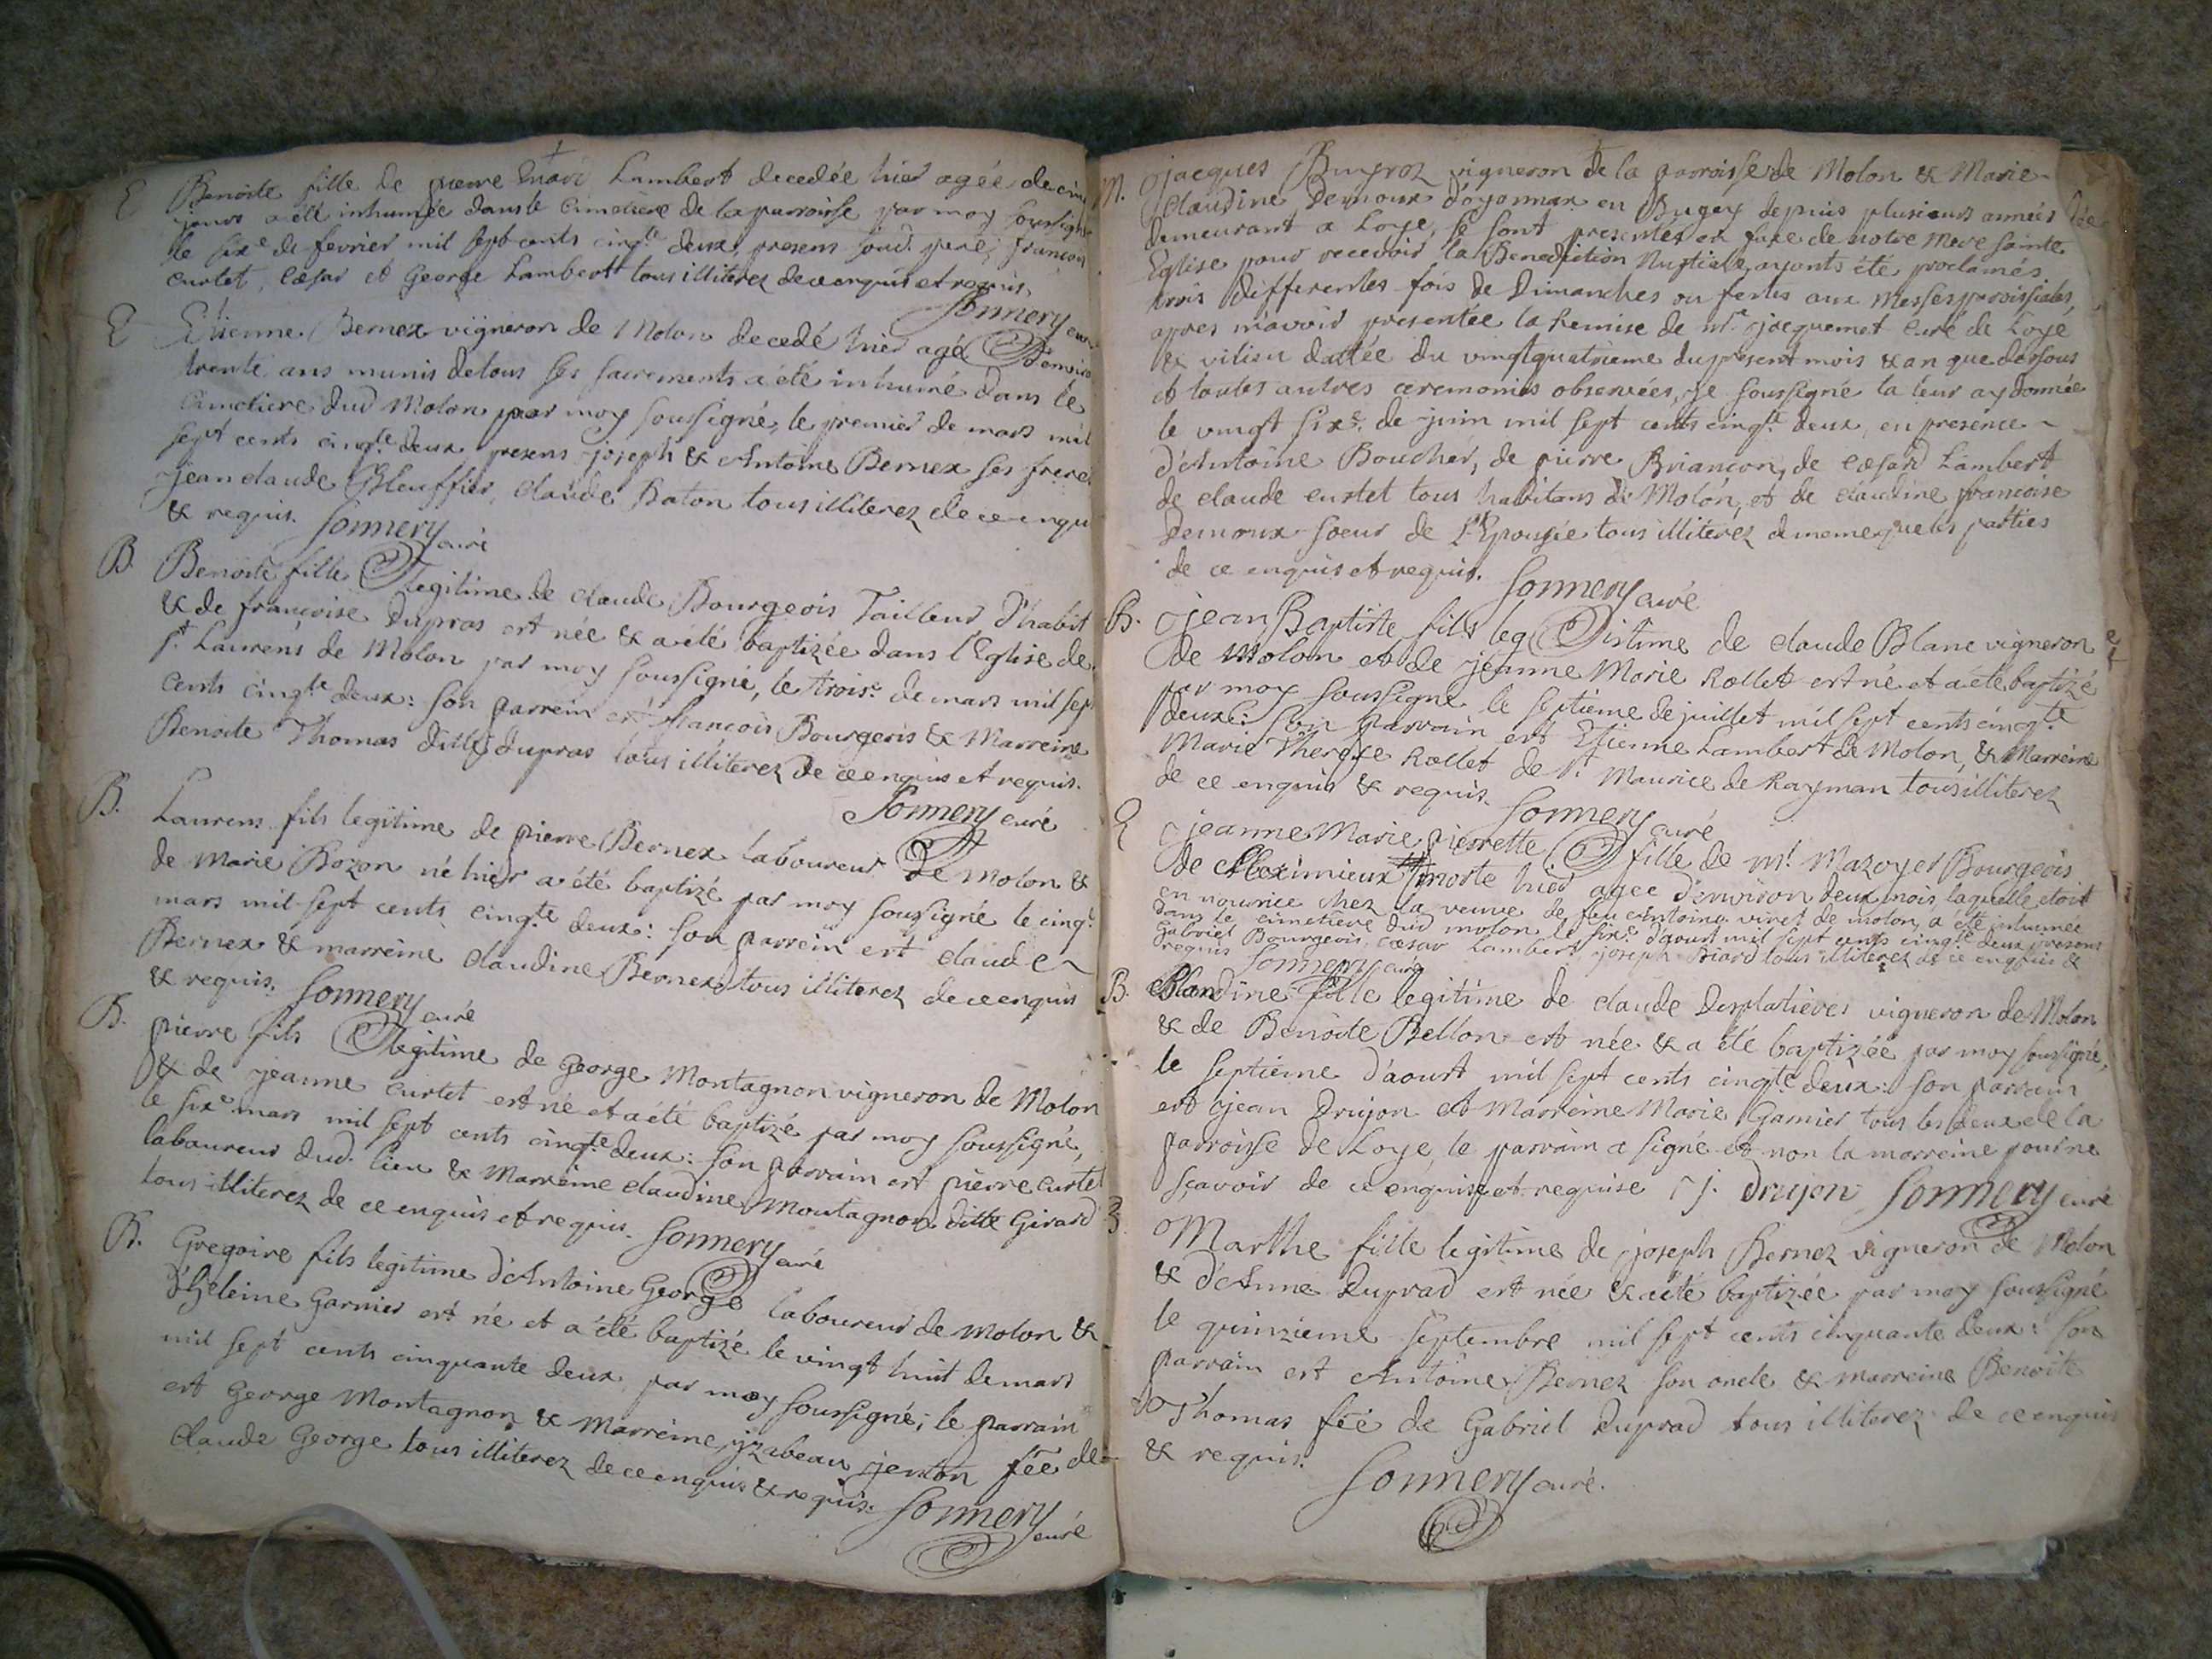 E Benoite fille de pierre Lambert decedée hier agée de cinq
jours a été inhumée dans le Cimetiere de la parroisse par moy soussigné
le six.e de fevrier mil sept cents cinq.te deux, presens soud. pere, françois
curtet, Cæsar et George Lambert tous illiterez de ce enquis et requis.
Sonnery curé
E Etienne Bernex vigneron de Molon decedé hier agé d'environ
trente ans munis de tous ses sacrements a été inhumé dans le
Cimetiere dud Molon par moy soussigné, le premier de mars mil
sept cents cinq.te deux presens joseph & Antoine Bernex ses freres
jean claude claude Baton tous illiterez de ce enquis
& requis. Sonnery curé
B. Benoite fille legitime de claude Bourgeois Tailleur d'habit
& de françoise Dupras est née & a été baptizée dans l'Eglise de
st. Laurens de Molon par moy soussigné, le trois.e de mars mil sept
cents cinq.te deux: son parrein est françois Bourgeois & Marreine
Benoite Thomas ditte dupras tous illiterez de ce enquis et requis.
Sonnery curé
B. Laurens fils legitime de pierre Bernex laboureur de Molon &
de Marie Bozon né hier a été baptizé par moy soussigné le cinq.e
mars mil sept cents cinq.te deux: son parrein est claude
Bernex & marreine claudine Bernex tous illiterez de ce enquis
& requis. Sonnery curé
B. pierre fils legitime de George Montagnon vigneron de Molon
& de jeanne curtet est né et a été baptizé par moy soussigné,
le six.e mars mil sept cents cinq.te deux: son parrain est pierre curtet
laboureur dud. lieu & Marreine claudine Montagnon ditte Girard
tous illiterez de ce enquis et requis. Sonnery curé
B. Gregoire fils legitime d'Antoine George laboureur de Molon &
d'heleine Garnier est né et a été baptizé le vingt huit de mars
mil sept cents cinquante deux par moy soussigné; le parrain
est George Montagnon & Marreine yzabeau jenton fée de
claude George tous illiterez de ce enquis & requis. Sonnery curé
M. jacques vigneron de la parroisse de Molon & Marie
claudine Demoux d'oyonnax en Bugey depuis plusieurs années
demeurant a Loye, se sont presentés en face de notre Mere sainte
Eglise pour recevoir la Benediction Nuptiale, ayants été proclamés
trois differentes fois de Dimanches ou festes aux Messes paroissiales,
apres m'avoir presentée la Remise de Mr. jacquemet Curé de Loye
& vilieu dattée du vingt quatrieme du present mois & an que dessous
et toutes autres ceremonies observées, je soussigné la leur ay donnée
le vingt six.e de juin mil sept cents cinq.te deux, en presence
d'Antoine Boucher, de pierre Briançon, de Cæsard Lambert
de claude curtet tous habitans de Molon, et de claudine françoise
Demoux soeur de l'Epousée tous illiterez de meme que les parties
de ce enquis et requis. Sonnery curé
B. jean Baptiste fils legitime de claude Blanc vigneron
de Molon et de jeanne Marie Rollet est né et a été baptizé
par moy soussigné le septieme de juillet mil sept cents cinq.te
deux: son parrain est Etienne Lambert de Molon, & Marreine
Marie Therese Rollet de st. Maurice de Rayman tous illiterez
de ce enquis & requis. Sonnery curé
E jeanne Marie pierrette fille de Mr. Mazoyer Bourgeois
de Meximieux morte hier agée d'environ deux mois laquelle etoit
en nourrice chez la veuve de feu Antoine viret de molon, a été inhumée
dans le cimetiere dud molon le six.e d'aoust mil sept cents cinq.te deux presens
Gabriel Bourgeois, cæsar Lambert joseph Biard tous illiterez de ce enquis &
requis Sonnery curé
B. Blandine fille legitime de claude Desplatieres vigneron de Molon
& de Benoite Bellon est née & a été baptizée par moy soussigné,
le septieme d'aoust mil sept cents cinq.te deux: son parrain
est jean Drujon et Marreine Marie Garnier tous les deux de la
parroisse de Loye, le parrain a signé et non la marreine pour ne
sçavoir de ce enquise et requise j. Drujon Sonnery curé
B Marthe fille legitime de joseph Bernex vigneron de Molon
& d'Anne Duprad est née & a été baptizée par moy soussigné
le quinzieme septembre mil sept cents cinquante deux: son
parrain est Antoine Bernex son oncle & marreine Benoite
Thomas fée de Gabriel Duprad tous illiterez de ce enquis
& requis.
Sonnery curé.